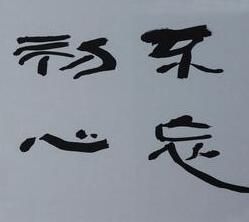 不忘
初心